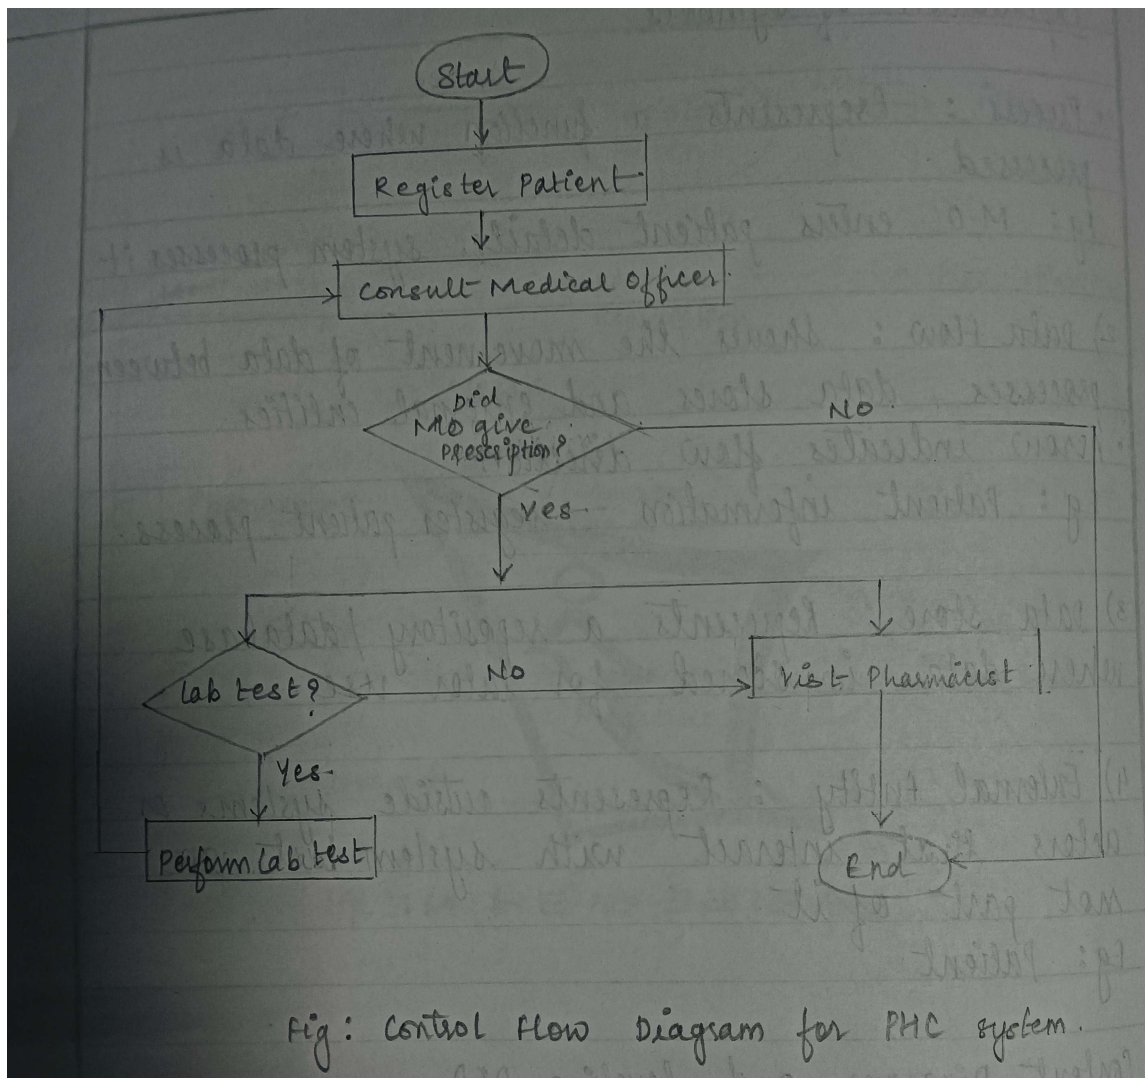 Start
Register Patient
Consult Medical Officer
Did
MO give
Prescription?
NO
Yes
Lab test?
No
Vist Pharmacist
Yes
Perform Lab test
End
Fig: Control Flow Diagram for PHC system.